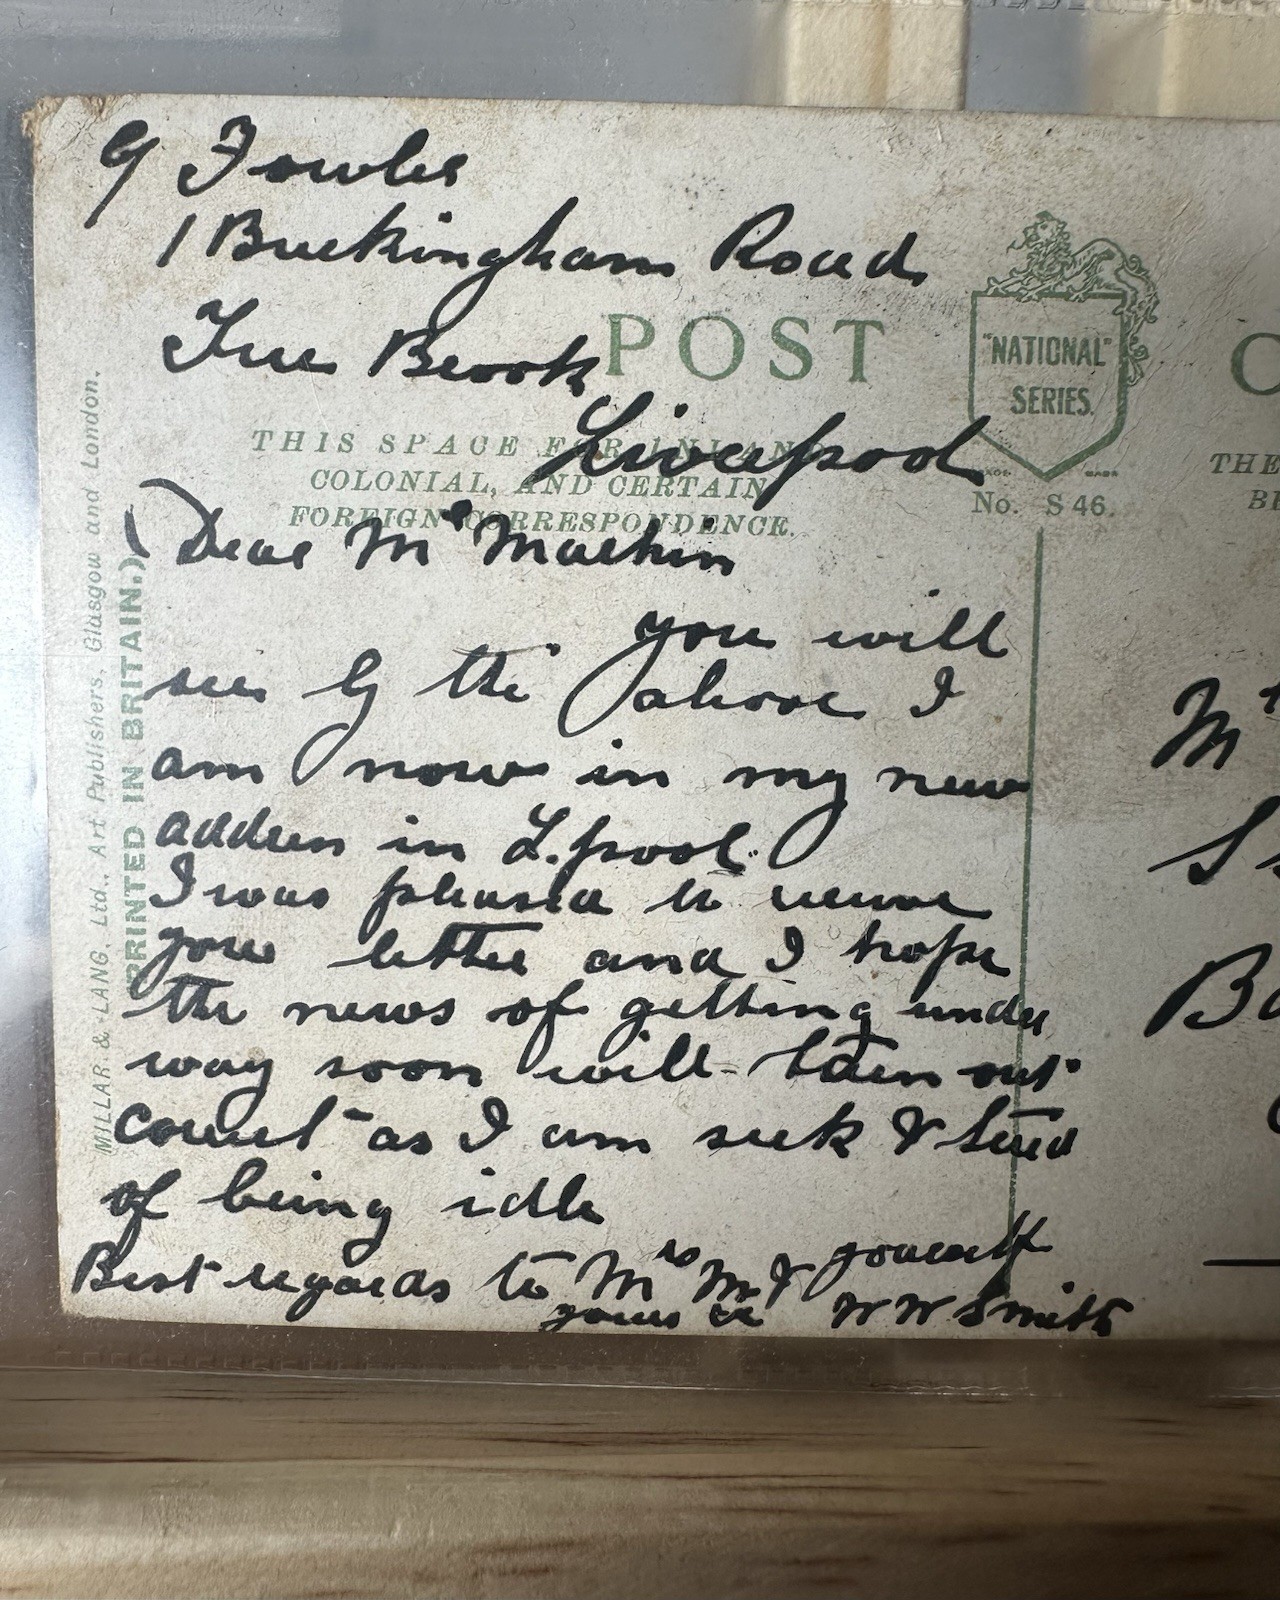 G Fowles
1 Buckingham Road
Tue Brook
Liverpool
POST
"NATIONAL"
SERIES.
No. S 46.
C
THIS SPACE FOR INLAND
COLONIAL, AND CERTAIN
FOREIGN CORRESPONDENCE.
THE
Dear Mr Machin
you will
see by the above I
am now in my new
address in L.pool.
I was pleased to receive
your letter and I hope
the news of getting under
way soon will turn out
correct as I am sick & tired
of being idle
Best regards to Mrs M & yourself
yours W W Smith
MILLAR & LANG, Ltd., Art Publishers, Glasgow and London.
(PRINTED IN BRITAIN.)
Mr